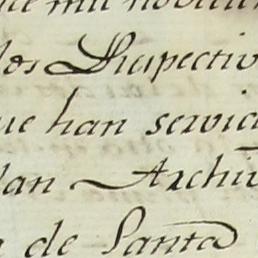 los Respectiv
ue han servid
lan Archi
de Santa